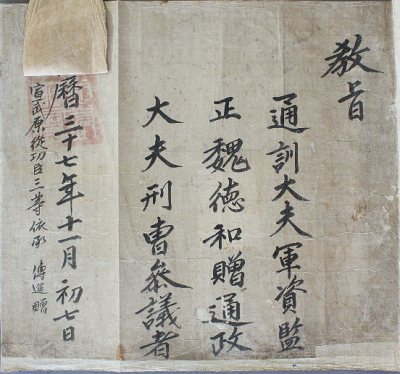 教旨
通訓大夫軍資監
正魏德和贈通政
大夫刑曺參議者
曆三十七年十一月初七日
宣武原從功臣三等依承
傳追贈